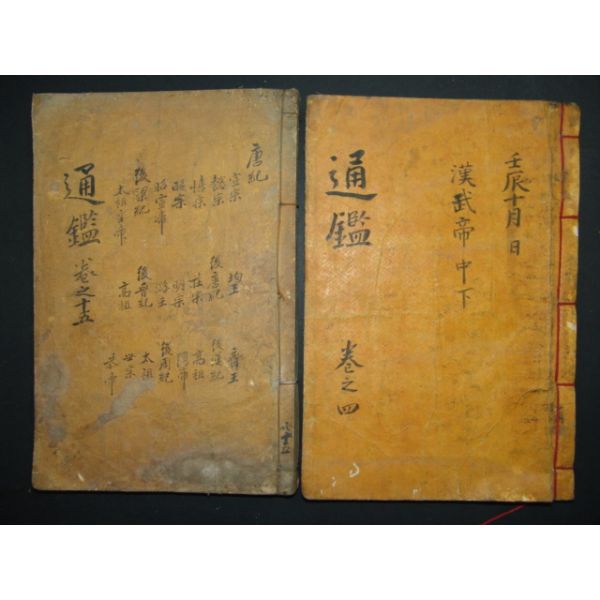 通鑑 卷之十五
唐紀
宣宗
懿宗
僖宗
昭宗
昭宣帝
後梁紀
太祖皇帝
均王
後唐紀
莊宗
明宗
潞王
後晉紀
高祖
齊王
後漢紀
高祖
隱帝
後周紀
太祖
世宗
恭帝
通鑑 卷之四
漢武帝 中下
壬辰十月 日